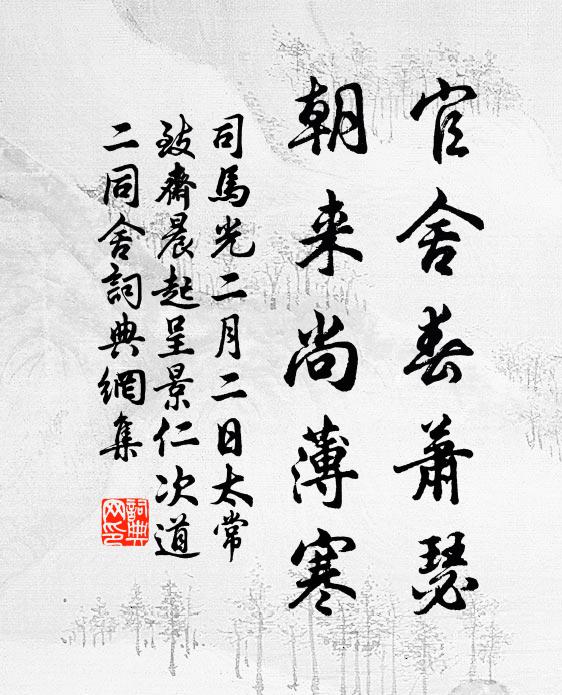 官舍春蕭瑟
朝来尚薄寒
司馬光二月二日太常
致齋晨起呈景仁次道
二同舍詞典網集
詞典
网印